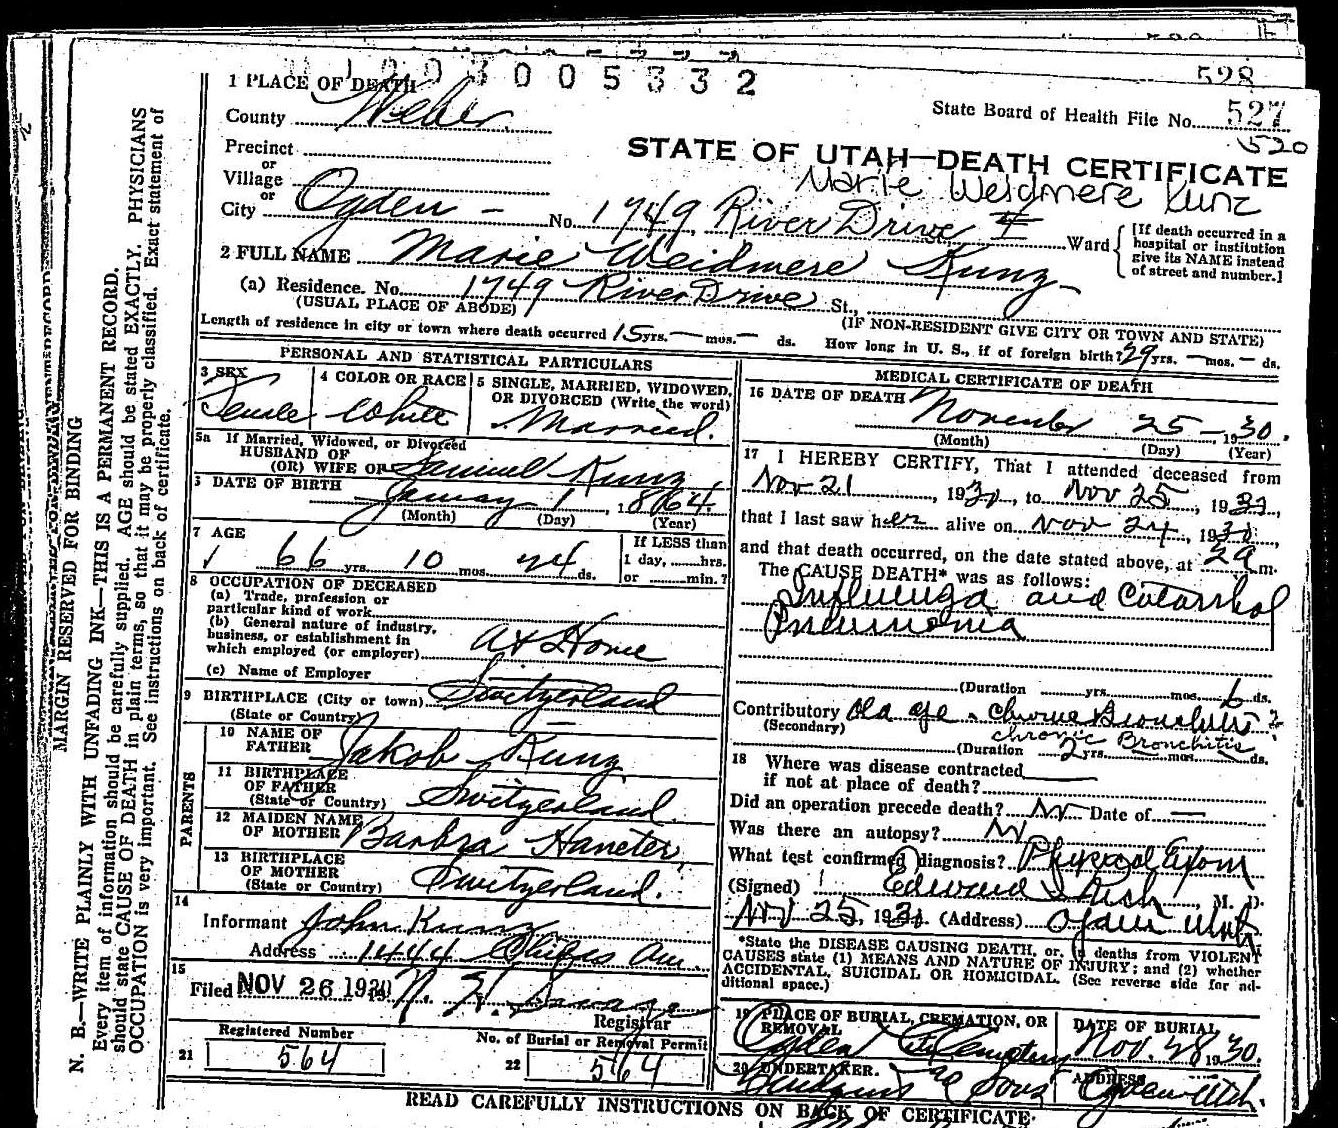 528
1 PLACE OF DEATH 3005332
State Board of Health File No. 527
520
County Weber
STATE OF UTAH—DEATH CERTIFICATE
Precinct
or
Village
Marie Weidmere Kunz
or
City Ogden - No. 1749 River Drive Ward
[If death occurred in a hospital or institution give its NAME instead of street and number.]
2 FULL NAME Marie Weidmere Kunz
(a) Residence. No. 1749 River Drive St.,
(USUAL PLACE OF ABODE) (IF NON-RESIDENT GIVE CITY OR TOWN AND STATE)
Length of residence in city or town where death occurred 15 yrs. — mos. — ds. How long in U. S., if of foreign birth? 29 yrs. — mos. — ds.
PERSONAL AND STATISTICAL PARTICULARS
3 SEX
Female
4 COLOR OR RACE
White
5 SINGLE, MARRIED, WIDOWED, OR DIVORCED (Write the word)
Married.
5a If Married, Widowed, or Divorced
HUSBAND OF
(OR) WIFE OF Samuel Kunz
DATE OF BIRTH January 1, 1864.
(Month) (Day) (Year)
7 AGE
66 yrs. 10 mos. 24 ds.
If LESS than
1 day, ......hrs.
or ......min.?
8 OCCUPATION OF DECEASED
(a) Trade, profession or
particular kind of work
(b) General nature of industry,
business, or establishment in
which employed (or employer) At Home
(c) Name of Employer
9 BIRTHPLACE (City or town) Switzerland
(State or Country)
PARENTS
10 NAME OF
FATHER Jakob Kunz
11 BIRTHPLACE
OF FATHER
(State or Country) Switzerland.
12 MAIDEN NAME
OF MOTHER Barbra Hancter,
13 BIRTHPLACE
OF MOTHER
(State or Country) Switzerland.
14
Informant John Kunz
Address 1444 Ave.
15
Filed NOV 26 1930
Registrar
Registered Number
21 564
No. of Burial or Removal Permit
22 564
MEDICAL CERTIFICATE OF DEATH
16 DATE OF DEATH November 25 - 1930.
(Month) (Day) (Year)
17 I HEREBY CERTIFY, That I attended deceased from
Nov 21, 1930, to Nov 25, 1930,
that I last saw her alive on Nov 24, 1930,
and that death occurred, on the date stated above, at 2 a m.
The CAUSE DEATH* was as follows:
Influenza and Catarrhal
Pneumonia
(Duration yrs. mos. 6 ds.
Contributory Old age & Chronic Bronchitis?
(Secondary) chronic Bronchitis
(Duration 2 yrs. mos. ds.
18 Where was disease contracted
if not at place of death?
Did an operation precede death? No Date of —
Was there an autopsy? No
What test confirmed diagnosis? Physical Exam
(Signed) Edward I Rich, M. D.
Nov 25, 1930 (Address) Ogden Utah
*State the DISEASE CAUSING DEATH, or, in deaths from VIOLENT
CAUSES state (1) MEANS AND NATURE OF INJURY; and (2) whether
ACCIDENTAL, SUICIDAL OR HOMICIDAL. (See reverse side for ad-
ditional space.)
19 PLACE OF BURIAL, CREMATION, OR
REMOVAL
Ogden City Cemetery
DATE OF BURIAL
Nov. 28 1930.
20 UNDERTAKER.
& Sons
ADDRESS
Ogden Utah.
READ CAREFULLY INSTRUCTIONS ON BACK OF CERTIFICATE.
MARGIN RESERVED FOR BINDING
N. B.—WRITE PLAINLY WITH UNFADING INK—THIS IS A PERMANENT RECORD.
Every item of information should be carefully supplied. AGE should be stated EXACTLY. PHYSICIANS
should state CAUSE OF DEATH in plain terms, so that it may be properly classified. Exact statement of
OCCUPATION is very important. See instructions on back of certificate.